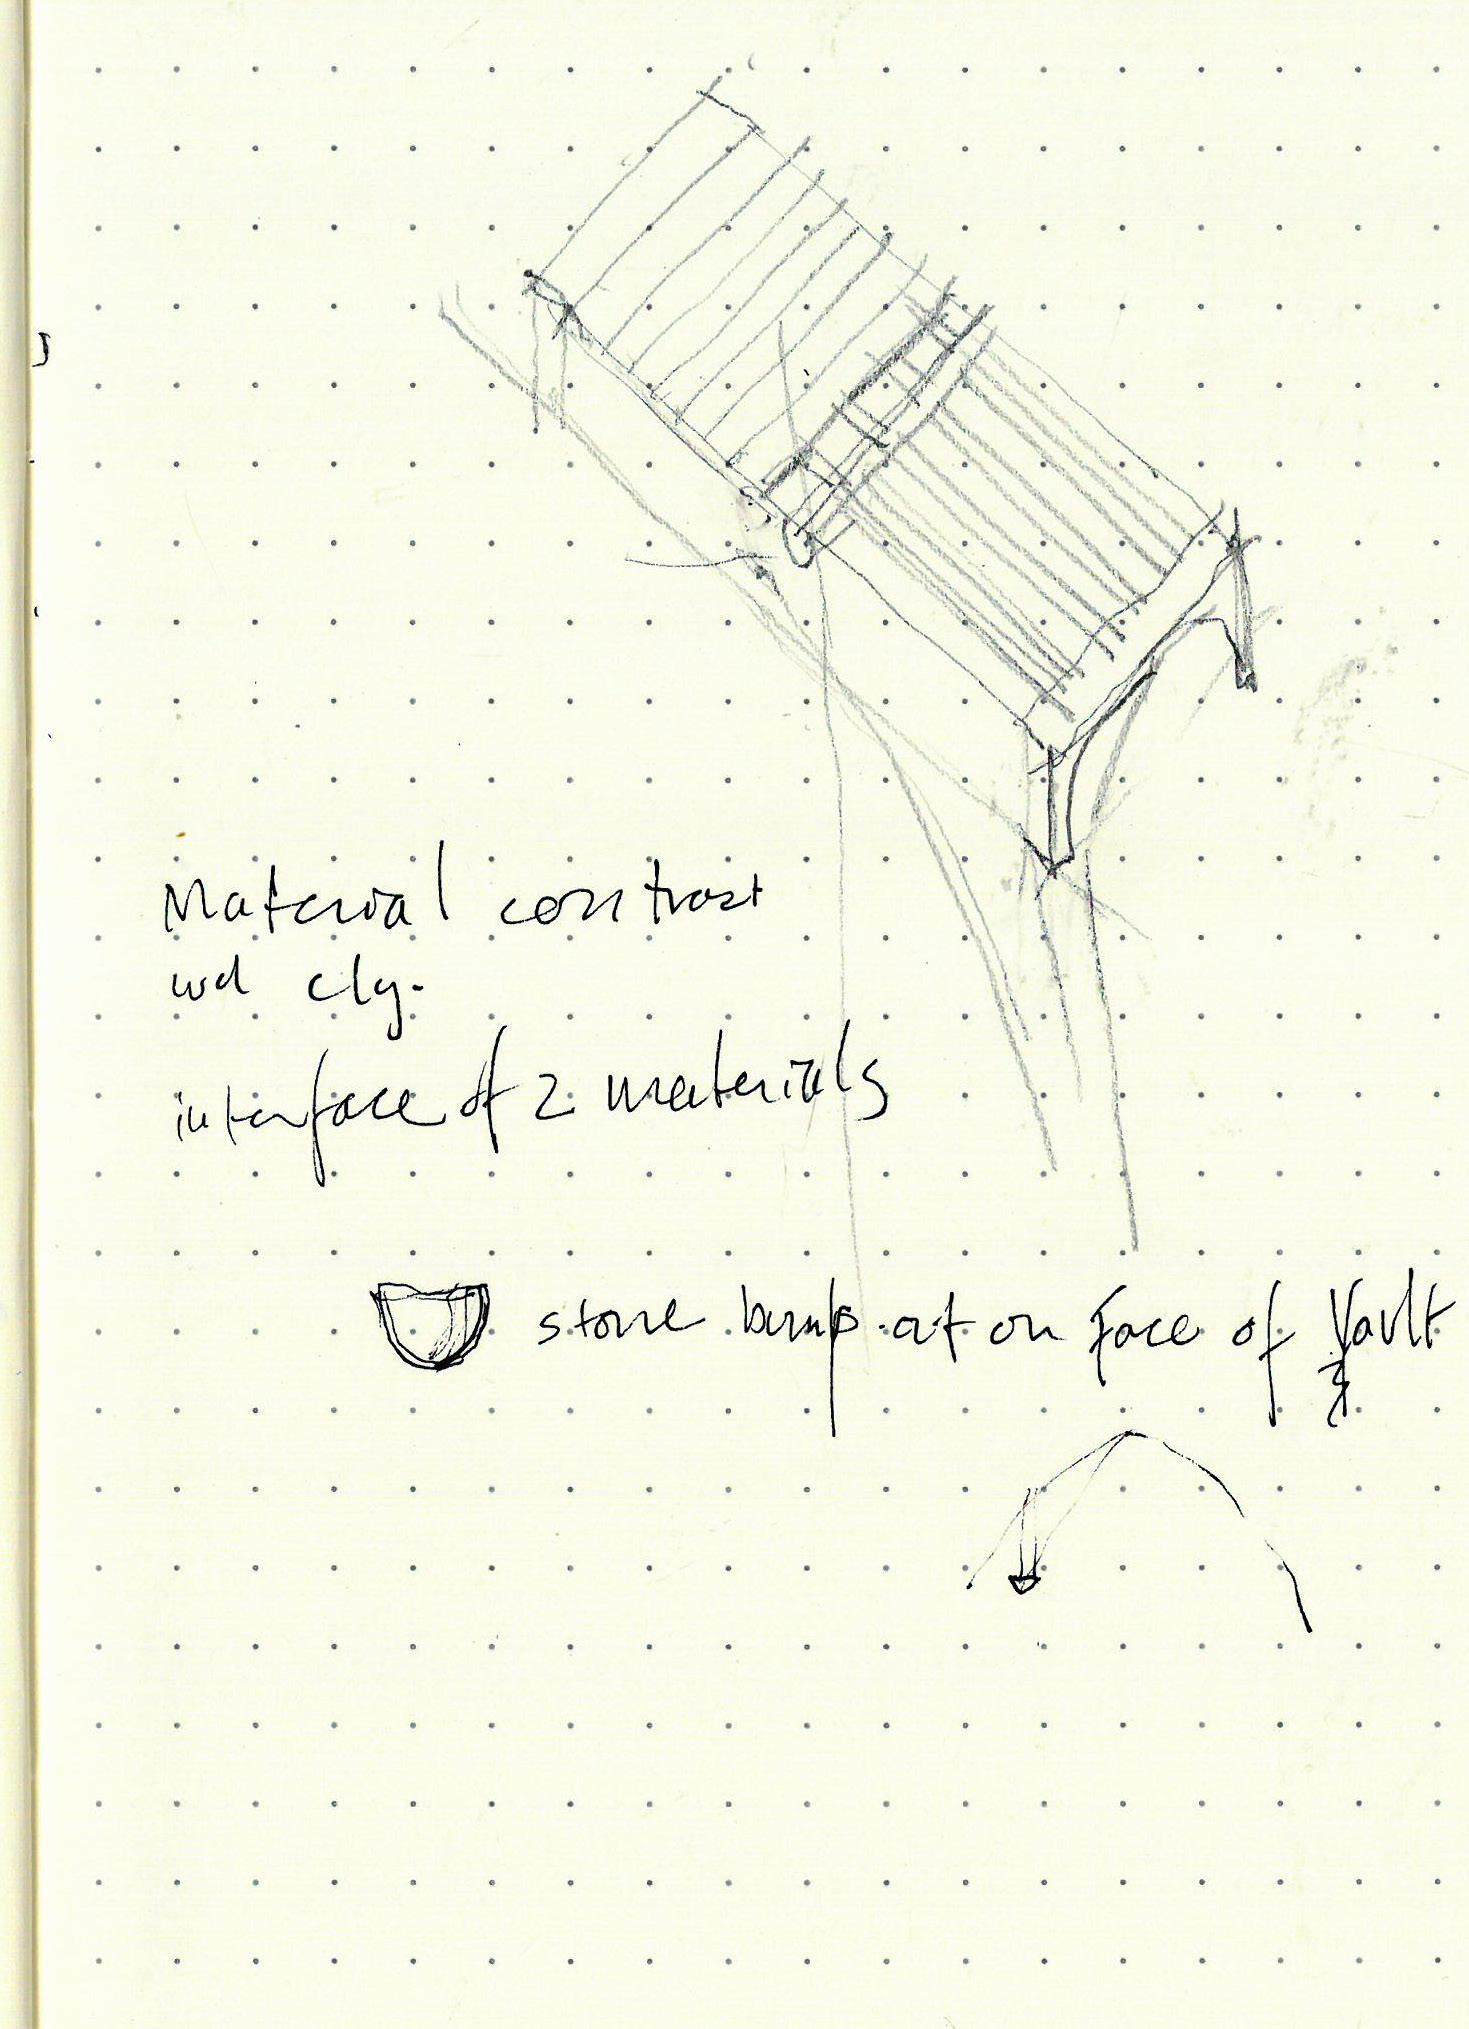 Material contrast
wd clg.
interface of 2 materials
stone bump at on face of Vault